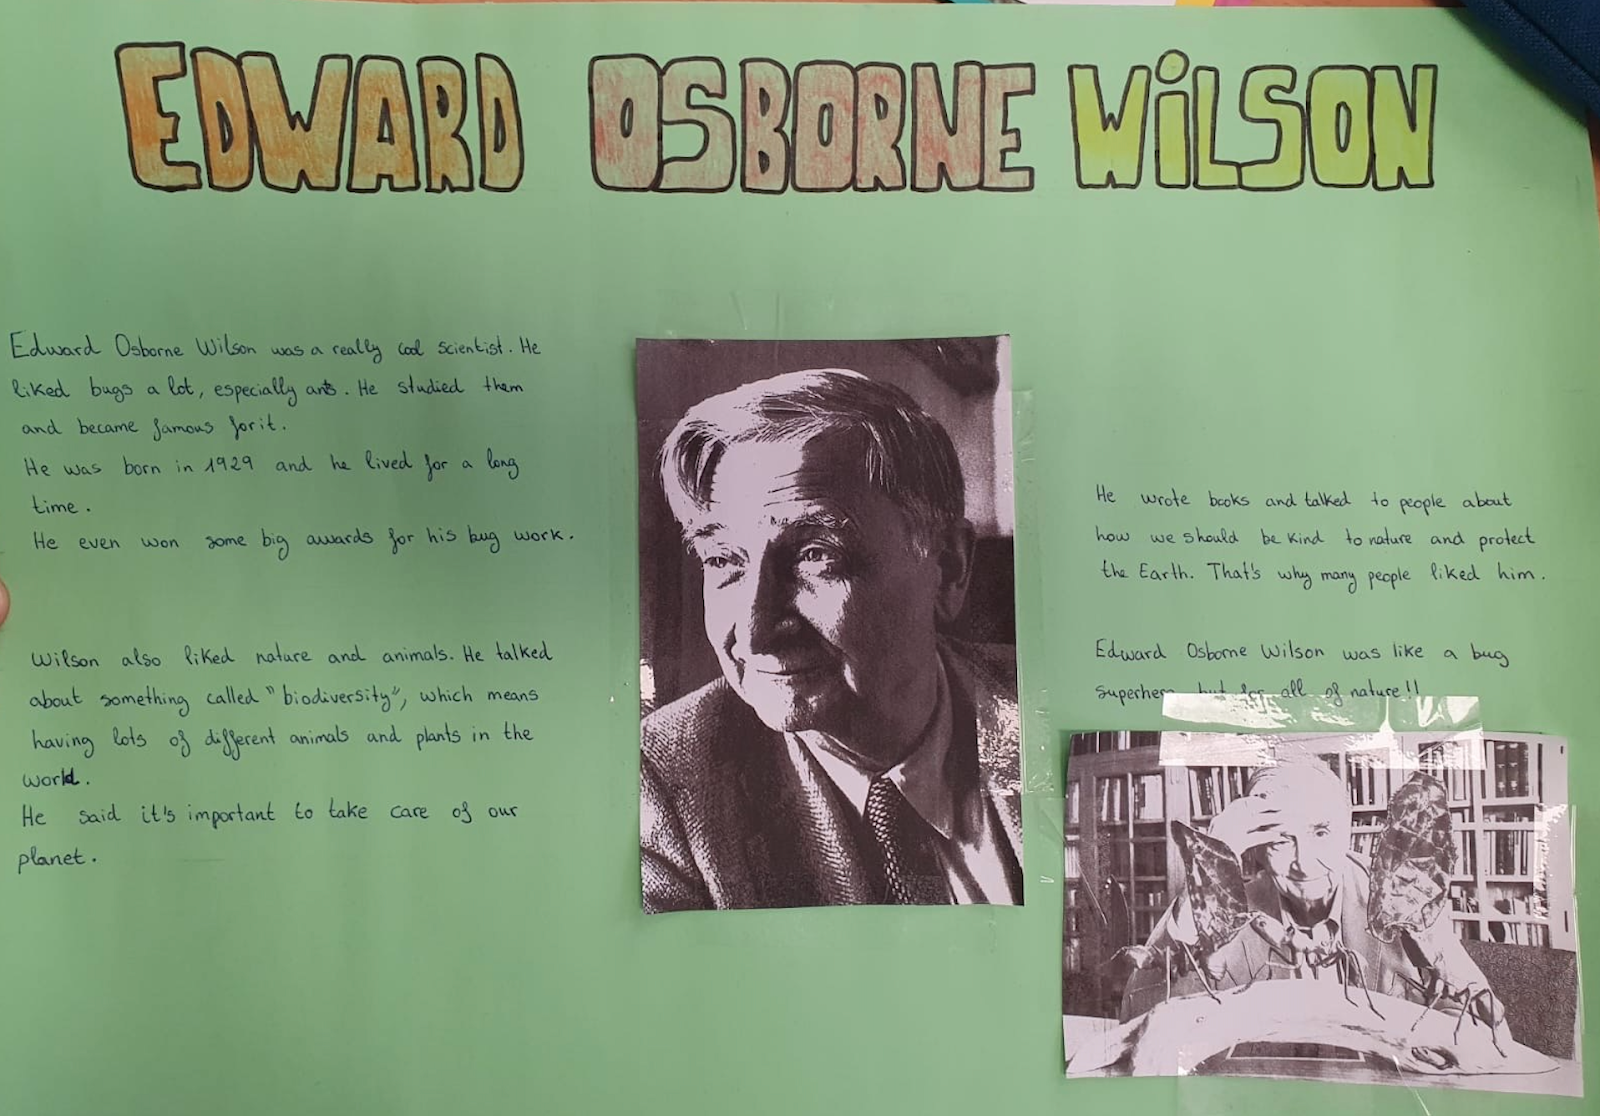 EDWARD OSBORNE WiLSON
Edward Osborne Wilson was a really cool scientist. He
liked bugs a lot, especially ants. He studied them
and became famous for it.
He was born in 1929 and he lived for a long
time.
He even won some big awards for his bug work.
Wilson also liked nature and animals. He talked
about something called "biodiversity", which means
having lots of different animals and plants in the
world.
He said it's important to take care of our
planet.
He wrote books and talked to people about
how we should be kind to nature and protect
the Earth. That's why many people liked him.
Edward Osborne Wilson was like a bug
superhero but for all of nature!!